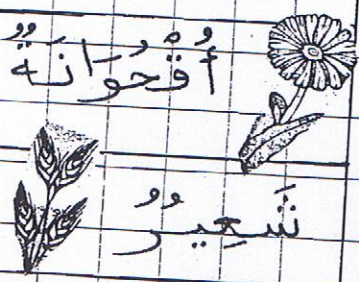 أُقْحُوَانَةٌ
شَعِيرٌ